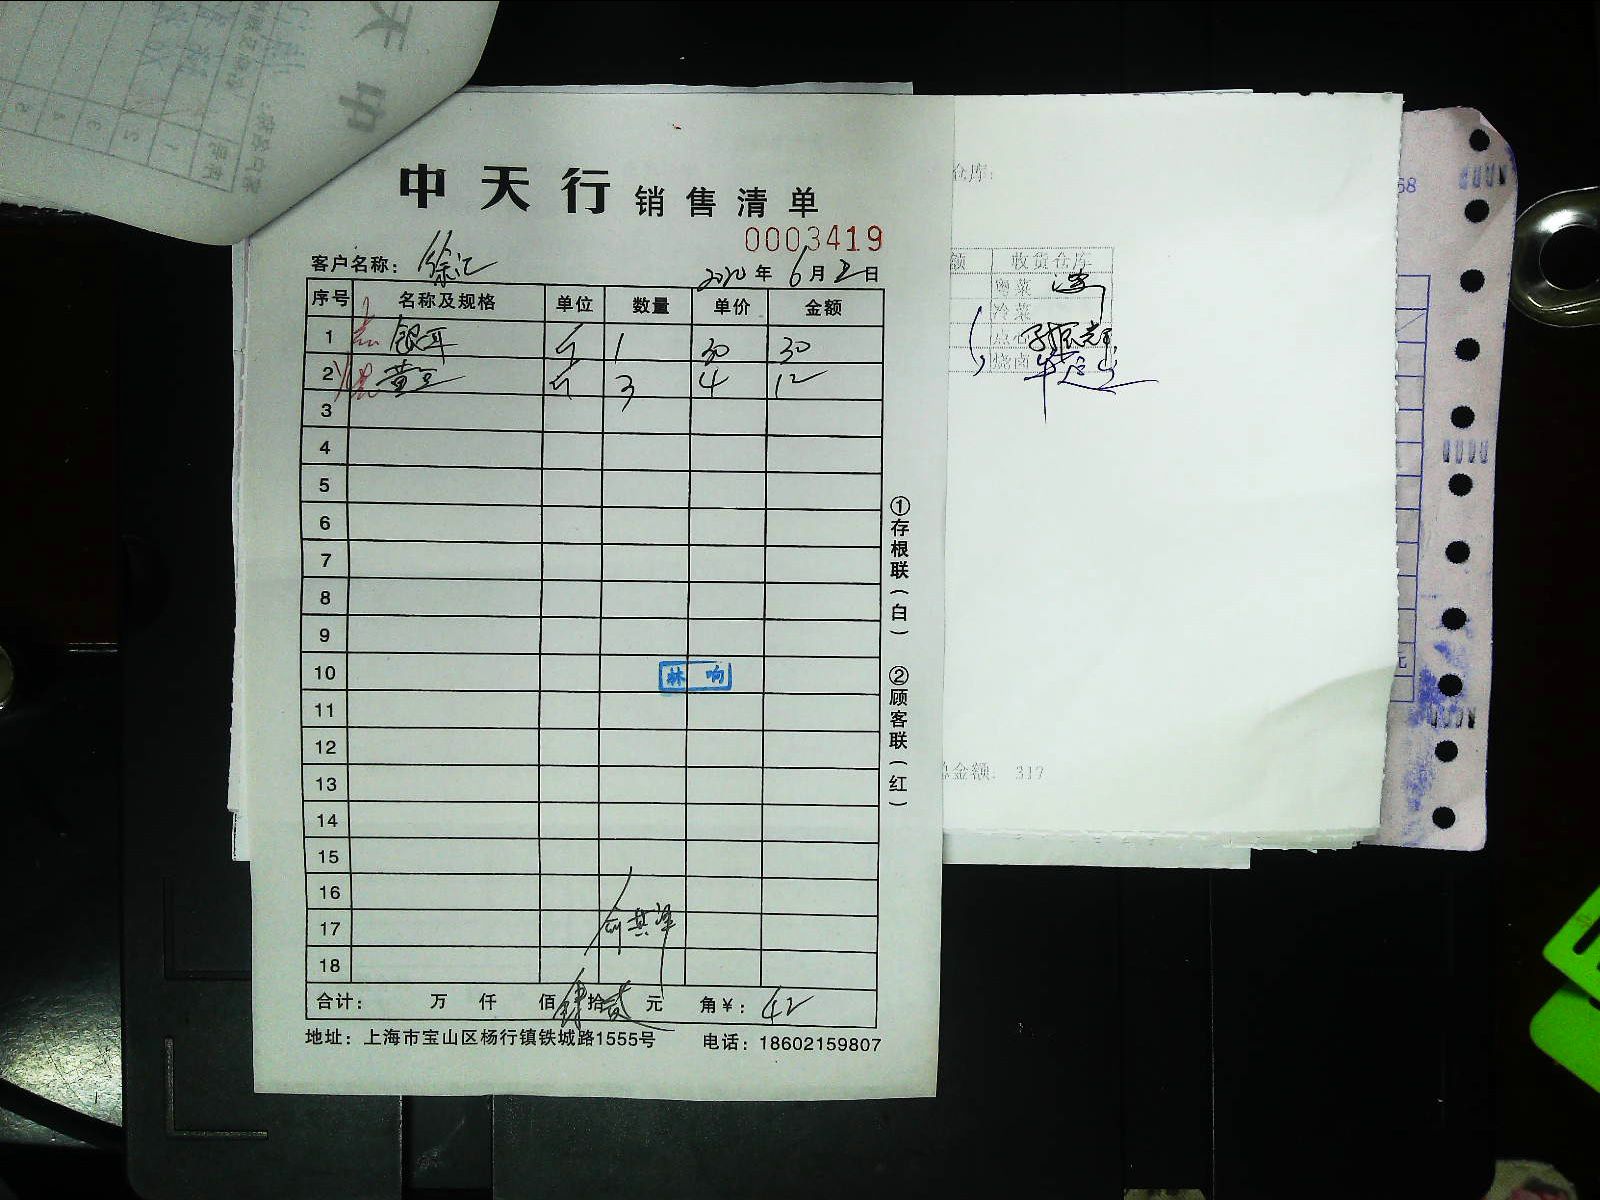 中天行 销售清单
0003419
客户名称：徐汇 2020年6月2日
序号 名称及规格 单位 数量 单价 金额
1 银耳 斤 1 30 30
2 黄豆 斤 3 4 12
3
4
5
6
7
8
9
10 林响
11
12
13
14
15
16
17
18
合计： 万 仟 佰 肆拾贰元 角¥：42
地址：上海市宝山区杨行镇铁城路1555号 电话：18602159807
①存根联（白） ②顾客联（红）
仓库：
额 收货仓库
粤菜
冷菜
点心
烧卤
总金额： 317
68
元